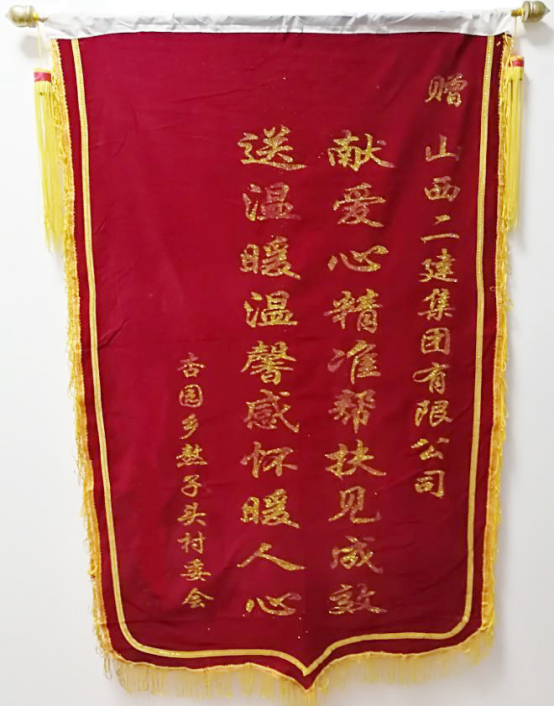 赠 山西二建集团有限公司
献爱心精准帮扶见成效
送温暖温馨感怀暖人心
杏园乡熬子头村委会